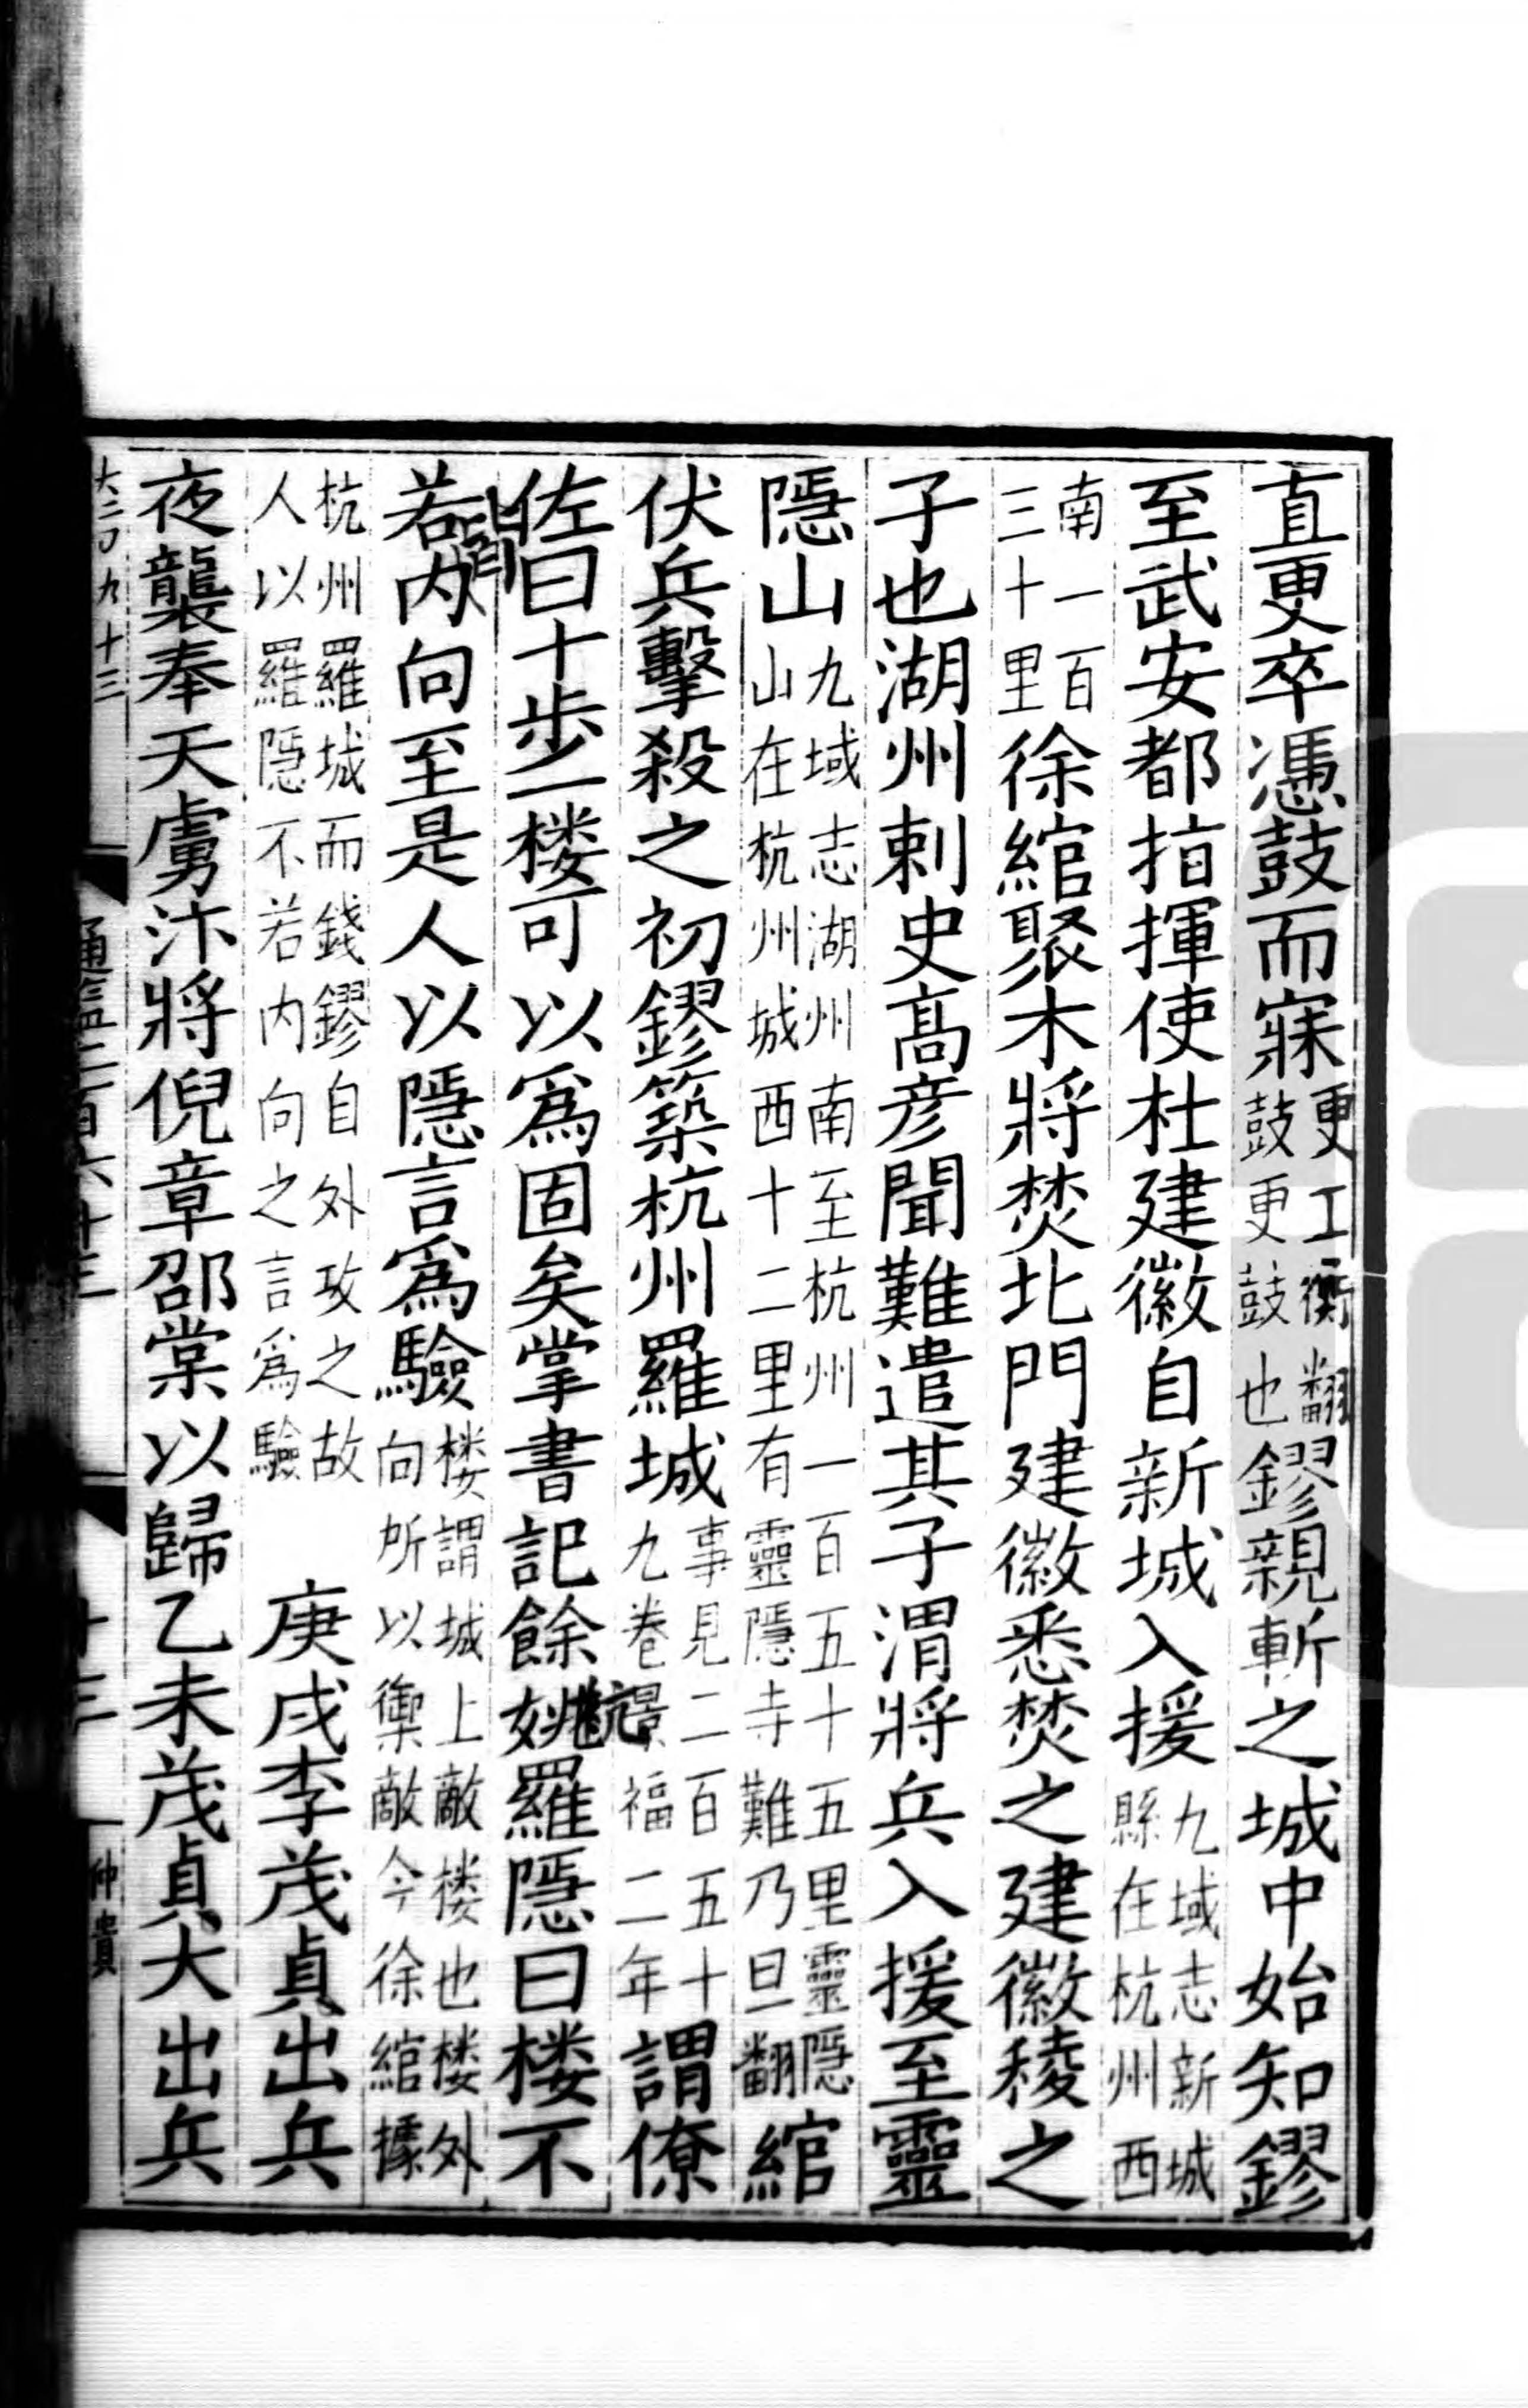 直更卒憑鼓而寐更工衡翻鼓更鼓也鏐親斬之城中始知鏐
至武安都指揮使杜建徽自新城入援九域志新城縣在杭州西
南一百三十里徐綰聚木將焚北門建徽悉焚之建徽稜之
子也湖州刺史高彦聞難遣其子渭將兵入援至靈
隱山九域志湖州南至杭州一百五十五里靈隱山在杭州城西十二里有靈隱寺難乃旦翻綰
伏兵擊殺之初鏐築杭州羅城事見二百五十九卷景福二年謂僚
佐曰十步一楼可以爲固矣掌書記餘姚羅隱曰楼不
若内向至是人以隱言爲驗楼謂城上敵楼也楼外向所以禦敵今徐綰據
杭州羅城而錢鏐自外攻之故人以羅隱不若内向之言爲驗 庚戌李茂貞出兵
夜襲奉天虜汴將倪章邵棠以歸乙未茂貞大出兵
通鑑二百六十三
十三
仲貴